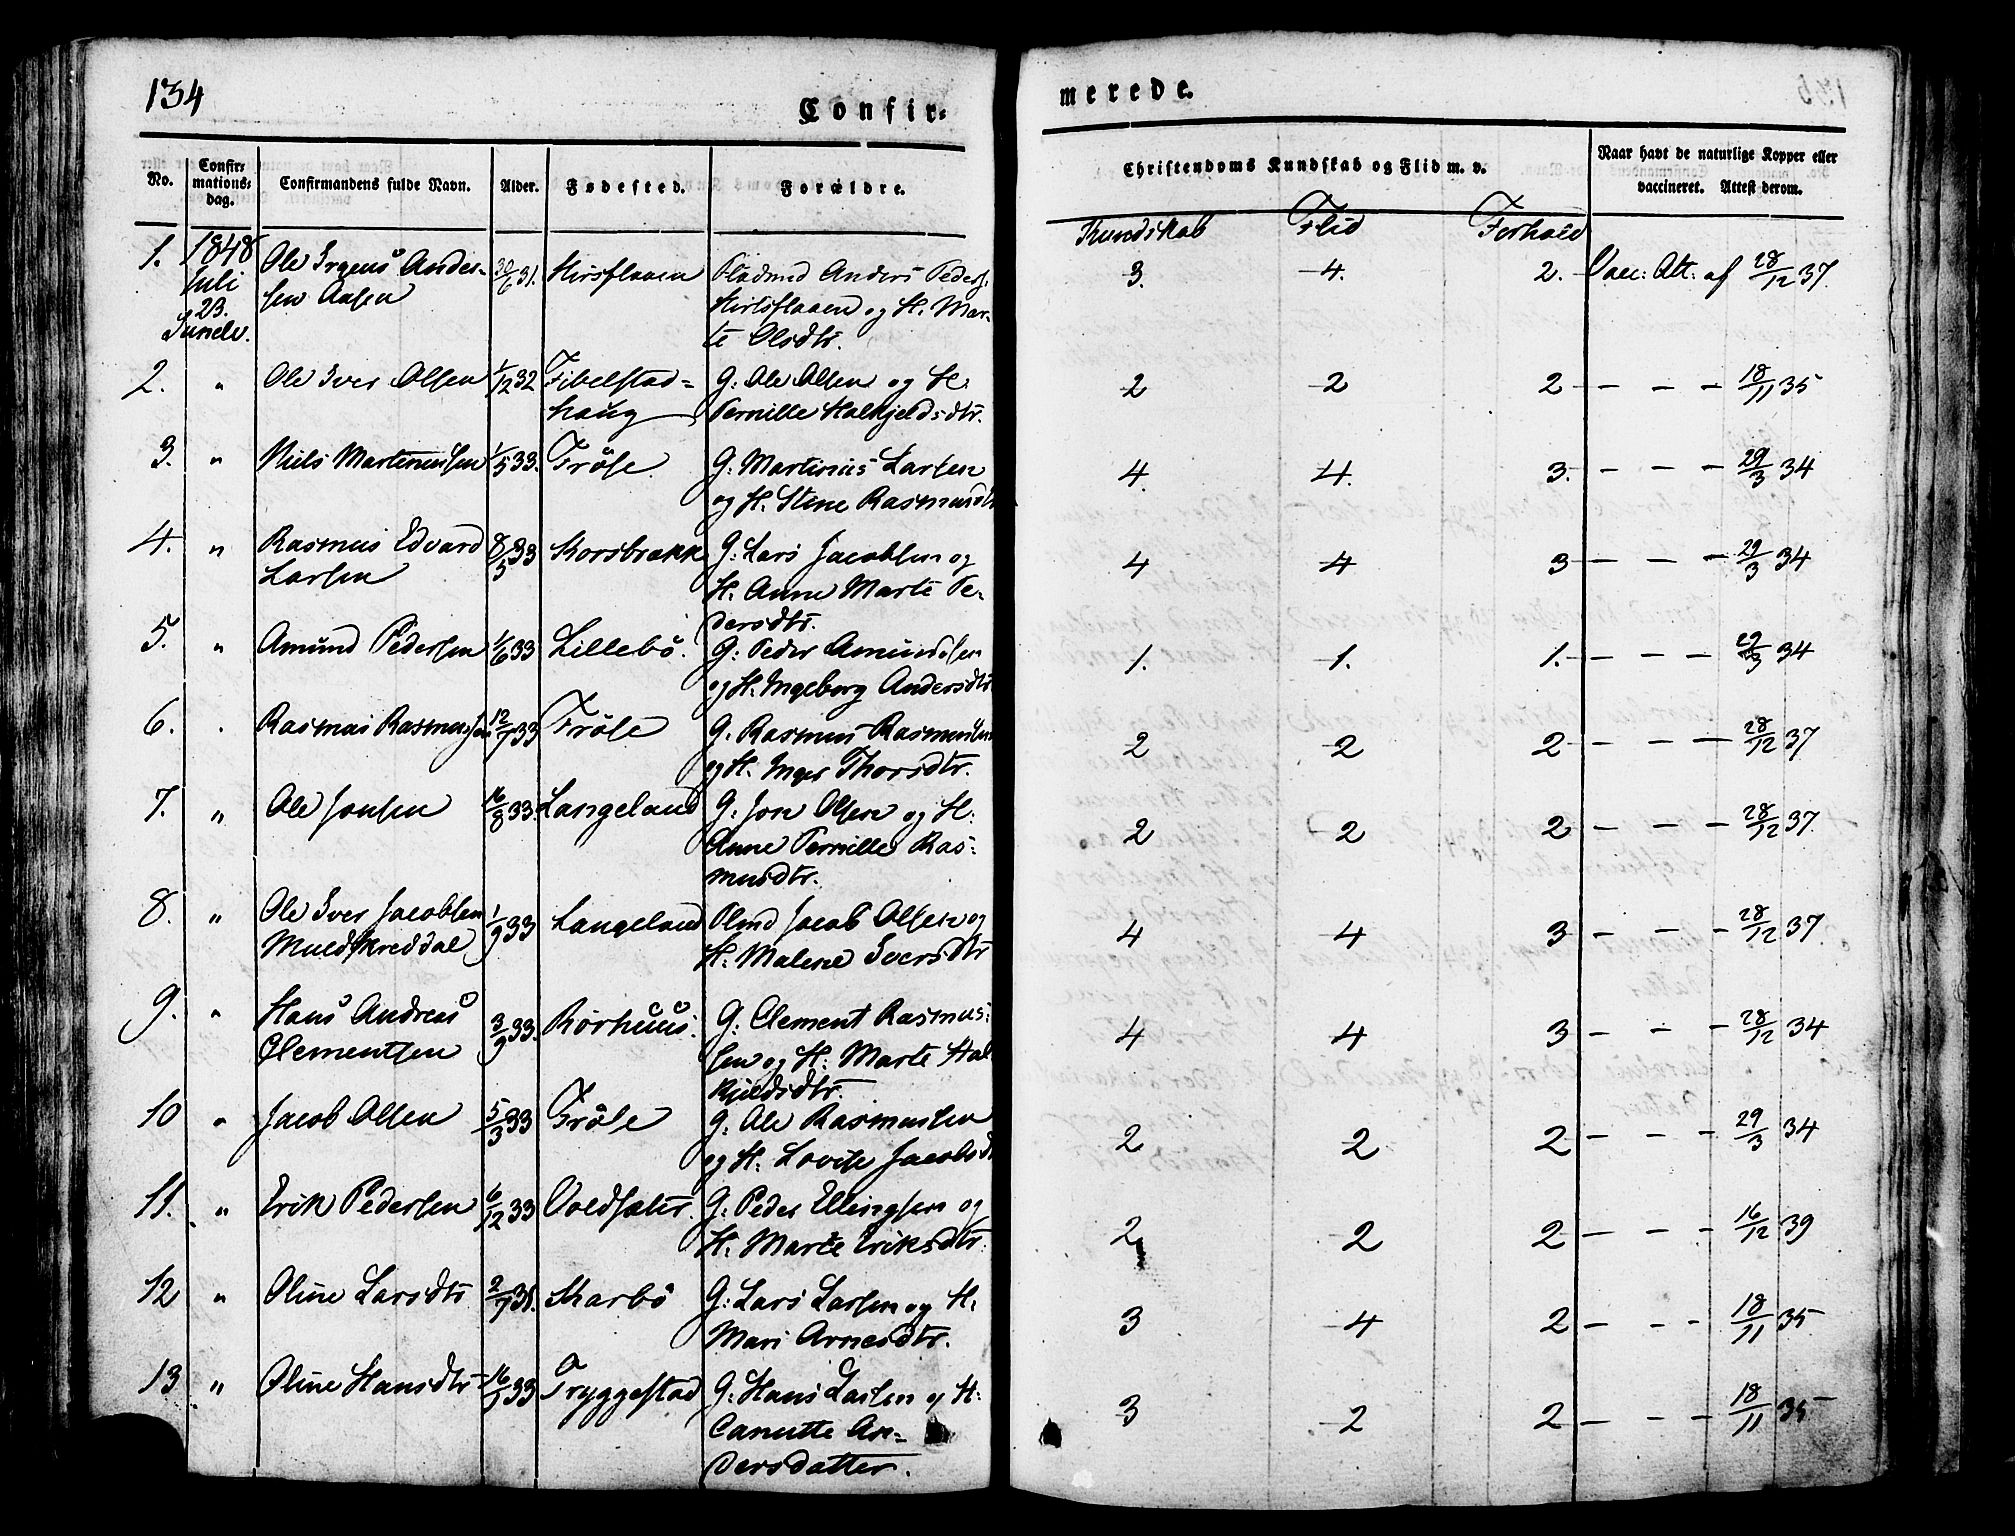 134
Confir=
merede.
No.
Confir=
mations=
dag.
Confirmandens fulde Navn.
Alder.
Fødested.
Forældre.
Christendoms Kundskab og Flid m. v.
Naar havt de naturlige Kopper eller
vaccineret. Attest derom.
Kundskab Flid Forhold
1. 1848 Ole Irgens Ander= 30/6 31. Hirsflaaen Pladsmd Anders Peders. 3. 4. 2. Vacc: Att. af 28/12 37.
Juli sen Aasen Hirlsflaaen og H. Mar=
23. te Olsdtr.
Sunelv.
2. " Ole Iver Olsen 1/12 32 Fibelstad= G: Ole Olsen og H. 2 2 2 – – – 18/11 35
haug Pernille Halkjeldsdtr.
3. " Niels Martinussen 1/5 33. Frøse G: Martinus Larsen 4. 4. 3. – – – 29/3 34
og H. Stine Rasmusdtr
4. " Rasmus Edvard 8/5 33 Korsbrække G: Lars Jacobsen og 4 4 3 – – – 29/3 34
Larsen H. Anne Marte Pe=
dersdtr.
5. " Amund Pedersen 1/6 33 Lillebø. G: Peder Amundsen 1. 1. 1. – – – 29/3 34
og H. Ingeborg Andersdtr
6. " Rasmus Rasmussen 12/7 33 Frøse G. Rasmus Rasmussen 2 2 2 – – – 28/12 37
og H. Inger Thorsdtr.
7. " Ole Jonsen 16/8 33. Langeland G: Jon Olsen og H: 2 2 2 – – – 28/12 37.
Anne Pernille Ras=
musdtr.
8. " Ole Iver Jacobsen 1/9 33 Langeland Plmd Jacob Olsen og 4 4 3 – – – 28/12 37.
Muldskreddal H. Malene Iversdtr
9. " Hans Andreas 3/9 33. Rørhuus. G: Clement Rasmus= 4 4 3 – – – 28/12 34
Clementsen sen og H: Marte Hal
kjeldsdtr.
10 " Jacob Olsen 5/3 33 Frøse G: Ole Rasmussen 2 2 2 – – – 29/3 34
og H: Lovise Jacobsd
11. " Erik Pedersen 6/12 33 Voldsæter. G: Peder Ellingsen og 2 2 2 – – – 16/12 39
H. Marte Eriksdtr.
12 " Oline Larsdtr 2/7 31. Skarbø G: Lars Larsen og H. 3 4 2 – – – 18/11 35
Mari Arnesdtr.
13 " Oline Hansdtr 16/1 33 Tryggestad G: Hans Larsen og H: 3 2 2 – – – 18/11 35
Canutte An=
dersdatter.